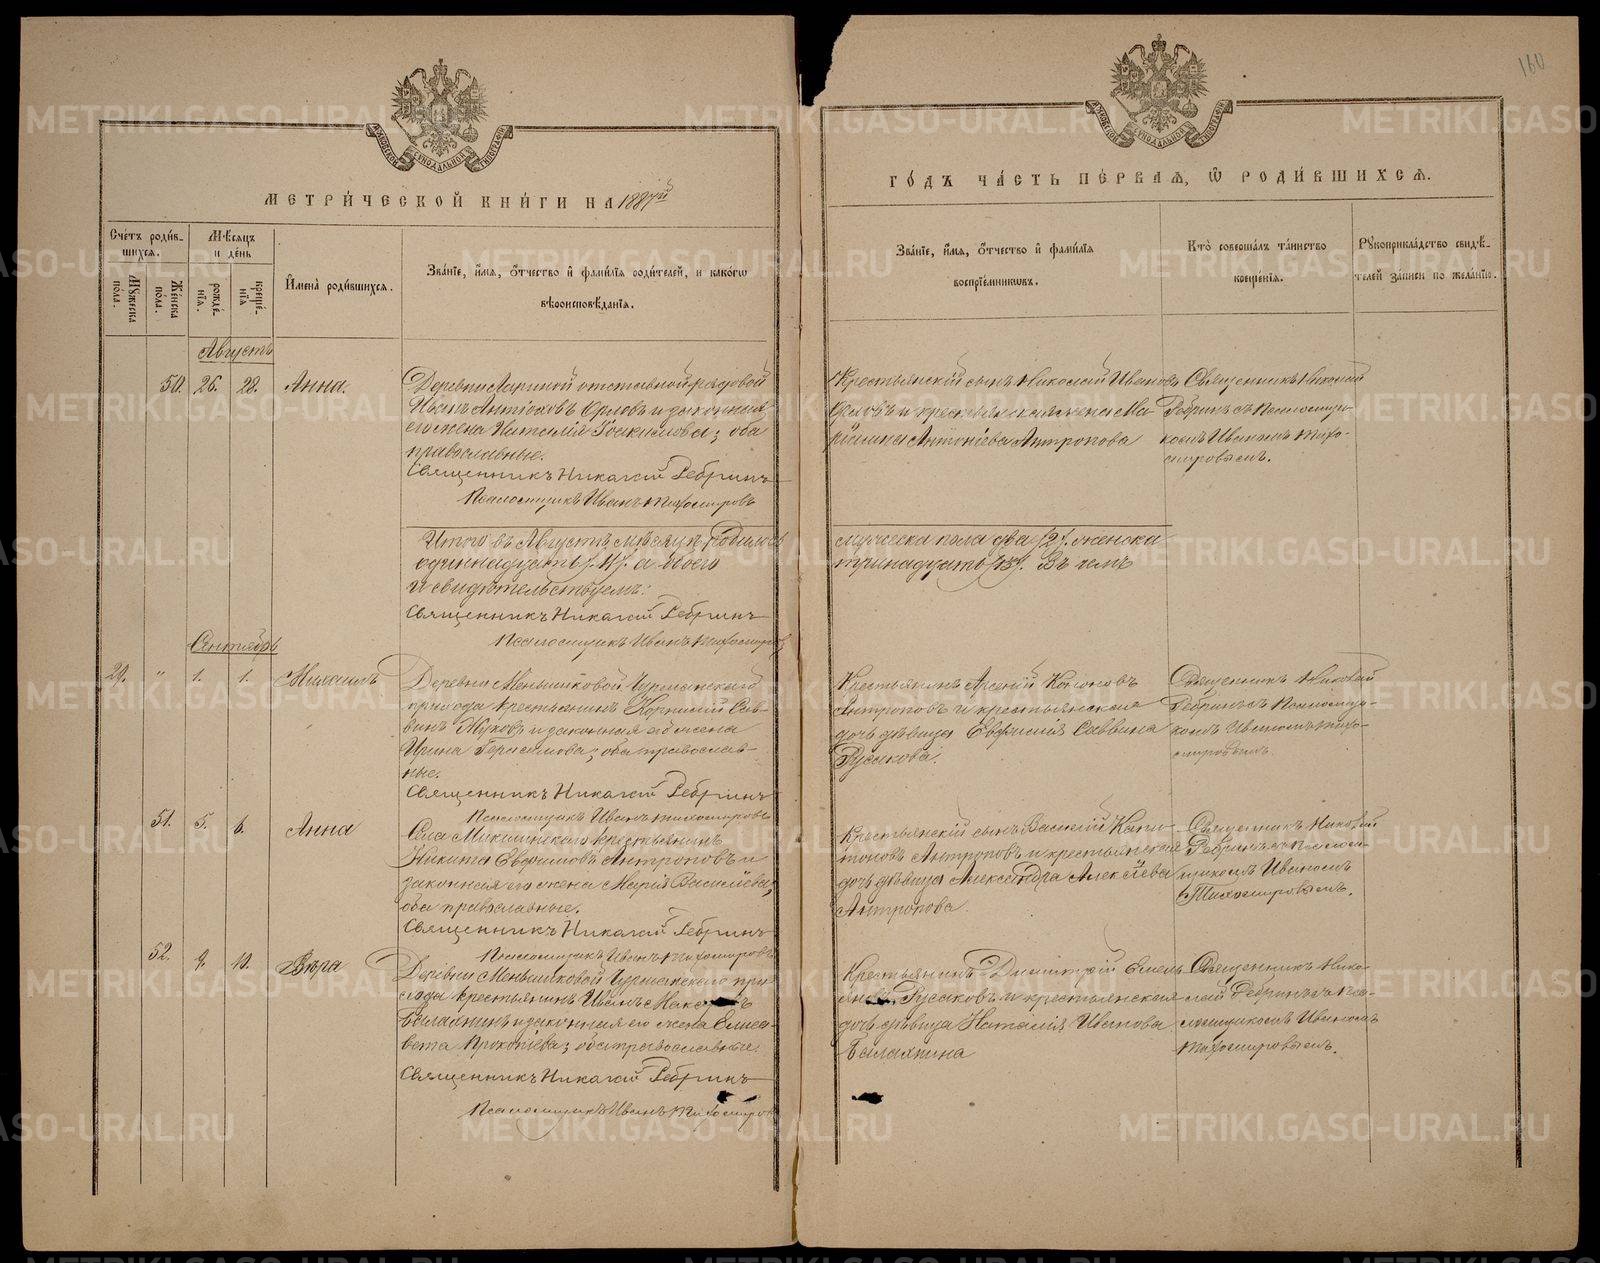 160
МОСКОВСКОЙ СѴНОДАЛЬНОЙ ТИПОГРАФІИ
МОСКОВСКОЙ СѴНОДАЛЬНОЙ ТИПОГРАФІИ
МЕТРИ́ЧЕСКОЙ КНИ́ГИ НА 1887й
ГО́ДЪ ЧА́СТЬ ПЕ́РВАѦ, Ѿ РОДИ́ВШИХСѦ.
Счетъ роди́в-
шихсѧ.
Мꙋжеска
по́ла.
Же́нска
по́ла.
Мѣсѧцъ
и де́нь
рожде́-
нїѧ.
креще́-
нїѧ
Имена̀ роди́вшихсѧ.
Зва́нїе, и́мѧ, о́тчество и фами́лїѧ роди́телей, и како́гѡ
вѣроисповѣ́данїѧ.
Зва́нїе, и́мѧ, о́тчество и фами́лїѧ
воспрїе́мникѡвъ.
Кто̀ соверша́лъ та́инство
креще́нїѧ.
Рꙋкоприкла́дство свидѣ́-
телей за́писи по жела́нїю.
Августъ
50. 26. 28. Анна.
Деревни Лариной отставной рядовой
Иванъ Антіоховъ Орловъ и законная
его жена Наталія Іоакимова; оба
православные.
Священникъ Николай Ребринъ
Псаломщикъ Иванъ Тихомировъ
Крестьянскій сынъ Николай Ивановъ
Орловъ и крестьянская жена Ма-
Антоніева Антропова
Священникъ Николай
Ребринъ съ Псаломщи-
комъ Иваномъ Тихо-
мировымъ.
Итого въ Августѣ мѣсяцѣ родилось
а обоего
и свидѣтельствуемъ:
Священникъ Николай Ребринъ
Псаломщикъ Иванъ Тихомировъ
мужеска пола два /2/. женска
тринадцать /13/. Въ чемъ
Сентябрь
29. " 1. 1. Михаилъ
Деревни Меньшиковой Чурманскаго
прихода крестьянинъ Корнилій Сав-
винъ Жуковъ и законная его жена
Ирина Герасимова; оба православ-
ные.
Священникъ Николай Ребринъ
Псаломщикъ Иванъ Тихомировъ
Крестьянинъ Арсеній Кононовъ
Антроповъ и крестьянская
дочь дѣвица Евфимія Саввина
Русакова.
Священникъ Николай
Ребринъ съ Псаломщи-
комъ Иваномъ Тихо-
мировымъ.
51. 5. 6. Анна
Села Микшинскаго крестьянинъ
Никита Евфимовъ Антроповъ и
законная его жена Марія Василіева;
оба православные.
Священникъ Николай Ребринъ
Псаломщикъ Иванъ Тихомировъ
Крестьянскій сынъ Василій Капи-
тоновъ Антроповъ и крестьянская
дочь дѣвица Александра Алексіева
Антропова.
Священникъ Николай
Ребринъ съ Псалом-
щикомъ Иваномъ
Тихомировымъ.
52. 9. 10. Вѣра
Деревни Меньшиковой Чурманскаго при-
хода крестьянинъ Иванъ
Балакинъ и законная его жена Елиса-
вета Прокопіева; оба православные.
Священникъ Николай Ребринъ
Псаломщикъ Иванъ Тихомировъ
Крестьянинъ Димитрій Емель-
яновъ Русаковъ и крестьянская
дочь дѣвица Наталія Иванова
Балакина
Священникъ Нико-
лай Ребринъ съ Пса-
ломщикомъ Иваномъ
Тихомировымъ.
METRIKI.GASO-URAL.RU